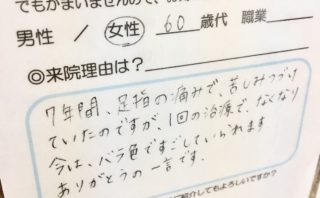 でもかまいませんので、
男性 / 女性 60 歳代 職業
◎来院理由は?
7年間、足指の痛みで、苦しみつづけ
ていたのですが、1回の治療で、なくなり
今は、バラ色ですごしていられます
ありがとうの一言です。
紹介してもよろしいですか?